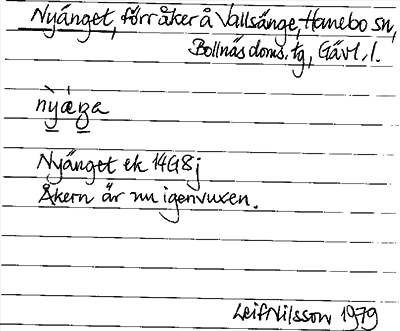 Nyänget, förr åker å Vallsänge, Hanebo sn,
Bollnäs doms. tg, Gävl. l.
Nyänget ek 14G8j
Åkern är nu igenvuxen.
Leif Nilsson 1979